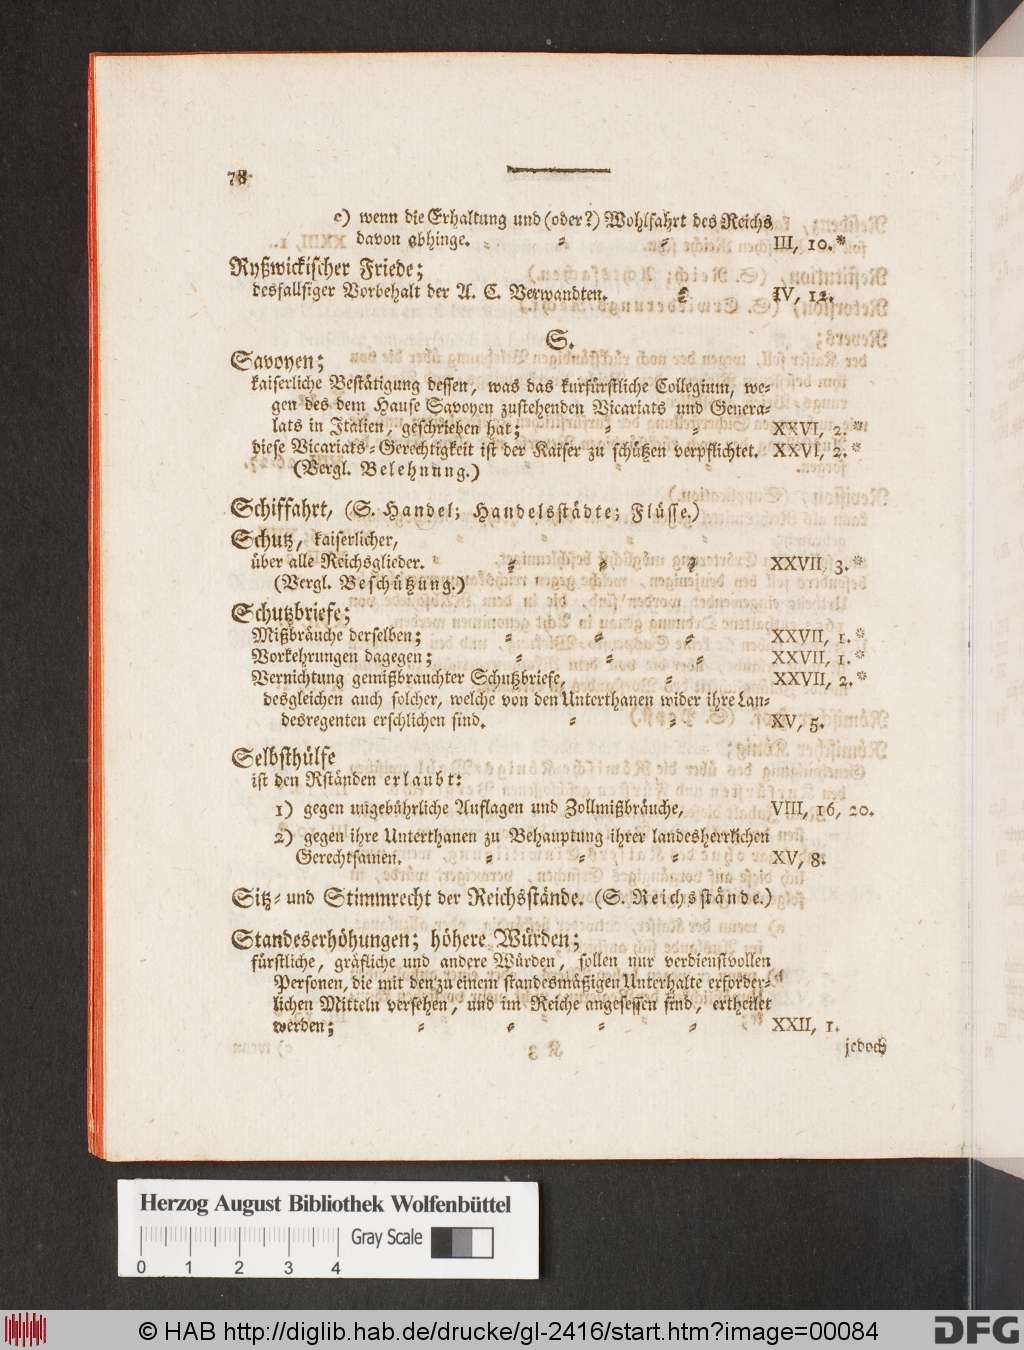 78
c) wenn die Erhaltung und (oder?) Wohlfahrt des Reichs
davon abhinge. = = = III, 10.*
Ryßwickischer Friede;
desfallsiger Vorbehalt der A. C. Verwandten. = IV, 12.
S.
Savoyen;
kaiserliche Bestätigung dessen, was das kurfürstliche Collegium, we=
gen des dem Hause Savoyen zustehenden Vicariats und Genera=
lats in Italien, geschrieben hat; = = XXVI, 2.*
diese Vicariats=Gerechtigkeit ist der Kaiser zu schützen verpflichtet. XXVI, 2.*
(Vergl. Belehnung.)
Schiffahrt, (S. Handel; Handelsstädte; Flüsse.)
Schutz, kaiserlicher,
über alle Reichsglieder. = = = XXVII, 3.*
(Vergl. Beschützung.)
Schutzbriefe;
Mißbräuche derselben; = = = XXVII, 1.*
Vorkehrungen dagegen; = = = XXVII, 1.*
Vernichtung gemißbrauchter Schutzbriefe, = XXVII, 2.*
desgleichen auch solcher, welche von den Unterthanen wider ihre Lan=
desregenten erschlichen sind. = = XV, 5.
Selbsthülfe
ist den Rständen erlaubt:
1) gegen ungebührliche Auflagen und Zollmißbräuche, VIII, 16, 20.
2) gegen ihre Unterthanen zu Behauptung ihrer landesherrlichen
Gerechtsamen. = = = XV, 8.
Sitz= und Stimmrecht der Reichsstände. (S. Reichsstände.)
Standeserhöhungen; höhere Würden;
fürstliche, gräfliche und andere Würden, sollen nur verdienstvollen
Personen, die mit den zu einem standesmäßigen Unterhalte erforder=
lichen Mitteln versehen, und im Reiche angesessen sind, ertheilet
werden; = = = = XXII, 1.
jedoch
Herzog August Bibliothek Wolfenbüttel
Gray Scale
0 1 2 3 4
© HAB http://diglib.hab.de/drucke/gl-2416/start.htm?image=00084
DFG